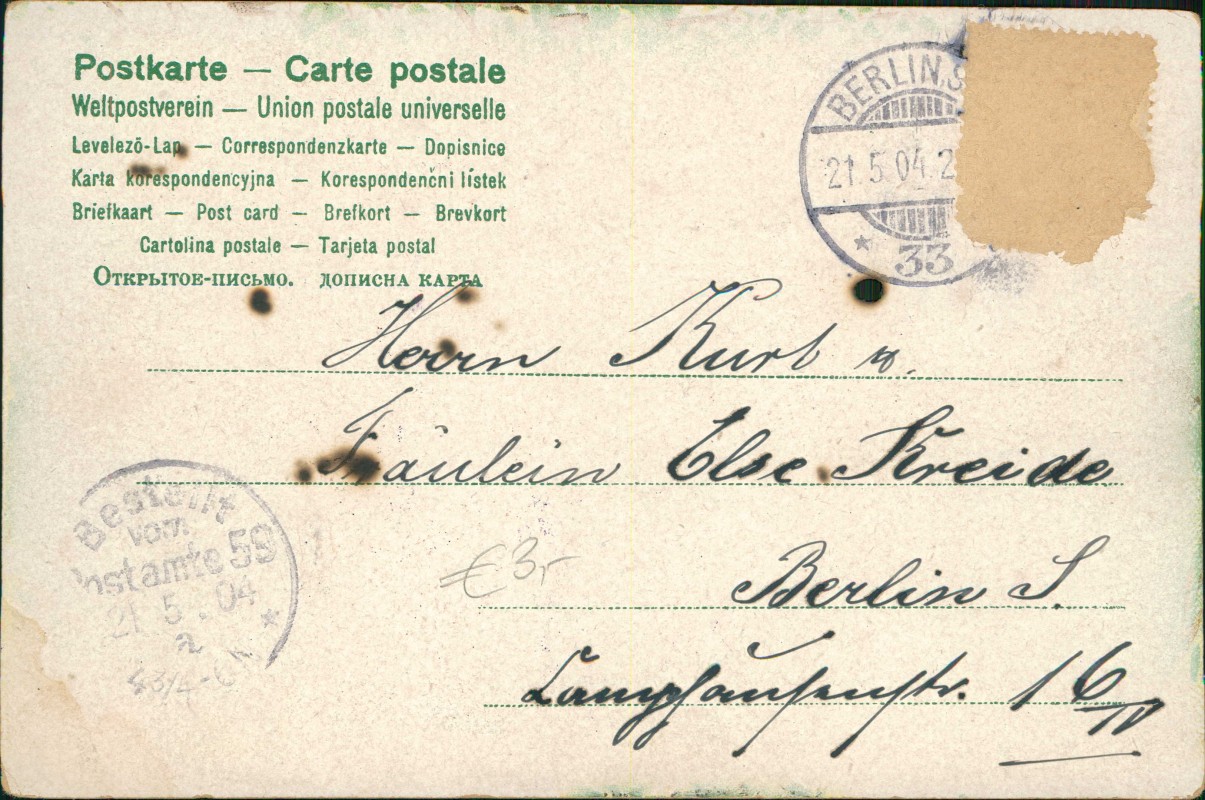 Postkarte — Carte postale
Weltpostverein — Union postale universelle
Levelező-Lap — Correspondenzkarte — Dopisnice
Karta korespondencyjna — Korespondenčni lístek
Briefkaart — Post card — Brefkort — Brevkort
Cartolina postale — Tarjeta postal
Открытое-письмо. дописна карта
BERLIN.S
21.5.04.2
* 33
Herrn Kurt u.
Fräulein Else Kreide
Berlin S.
16 IV
Bestellt
vom
Postamte 59
21.5.04
*
€ 3,-